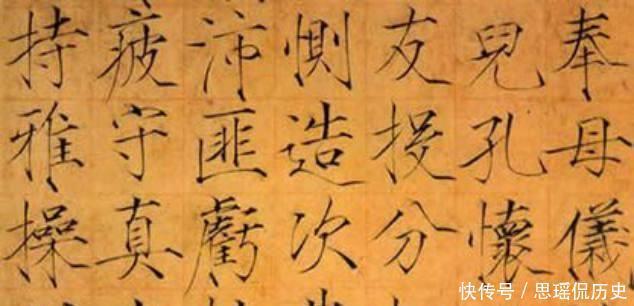 奉母儀
兒孔懷
友投分
惻造次
沛匪虧
疲守真
持雅操
快传号/思瑶侃历史